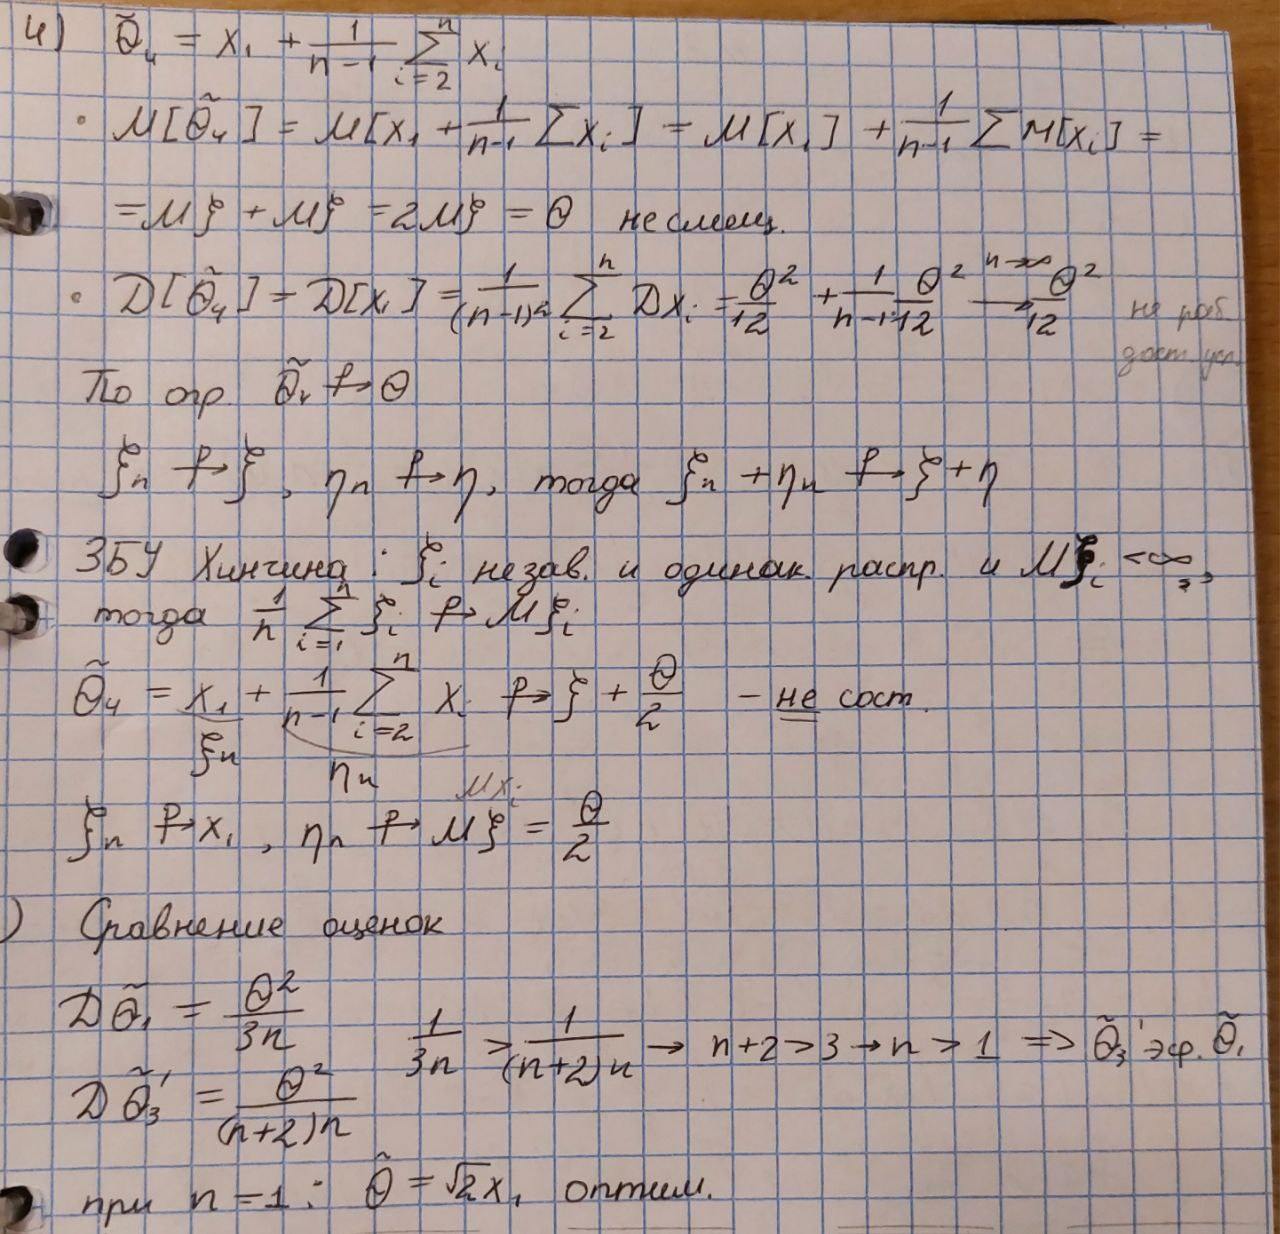 4) θ̃₄ = x₁ + 1/(n-1) ∑_{i=2}^{n} xᵢ
· M[θ̃₄] = M[x₁ + 1/(n-1) ∑xᵢ] = M[x₁] + 1/(n-1) ∑M[xᵢ] =
= Mξ + Mξ = 2Mξ = θ несмещ.
· D[θ̃₄] = D[x₁] = 1/(n-1)² ∑_{i=2}^{n} Dxᵢ = θ²/12 + 1/(n-1) · θ²/12 →(n→∞) θ²/12 не раб. дост. усл.
По опр. θ̃₄ P→ θ
ξₙ P→ ξ, ηₙ P→ η, тогда ξₙ + ηₙ P→ ξ + η
ЗБУ Хинчина: ξᵢ незав. и одинак. распр. и Mξᵢ < ∞,
тогда 1/n ∑_{i=1}^{n} ξᵢ P→ Mξᵢ
θ̃₄ = x₁ + 1/(n-1) ∑_{i=2}^{n} xᵢ P→ ξ + θ/2 - не сост.
ξₙ ηₙ
Mxᵢ
ξₙ P→ x₁, ηₙ P→ Mξ = θ/2
) Сравнение оценок
Dθ̃₁ = θ²/3n
1/3n > 1/((n+2)n) → n+2 > 3 → n > 1 => θ̃₃' эф. θ̃₁
Dθ̃₃' = θ²/((n+2)n)
при n = 1: θ̃ = √2x₁ оптим.